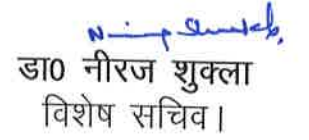 डा0 नीरज शुक्ला
विशेष सचिव।